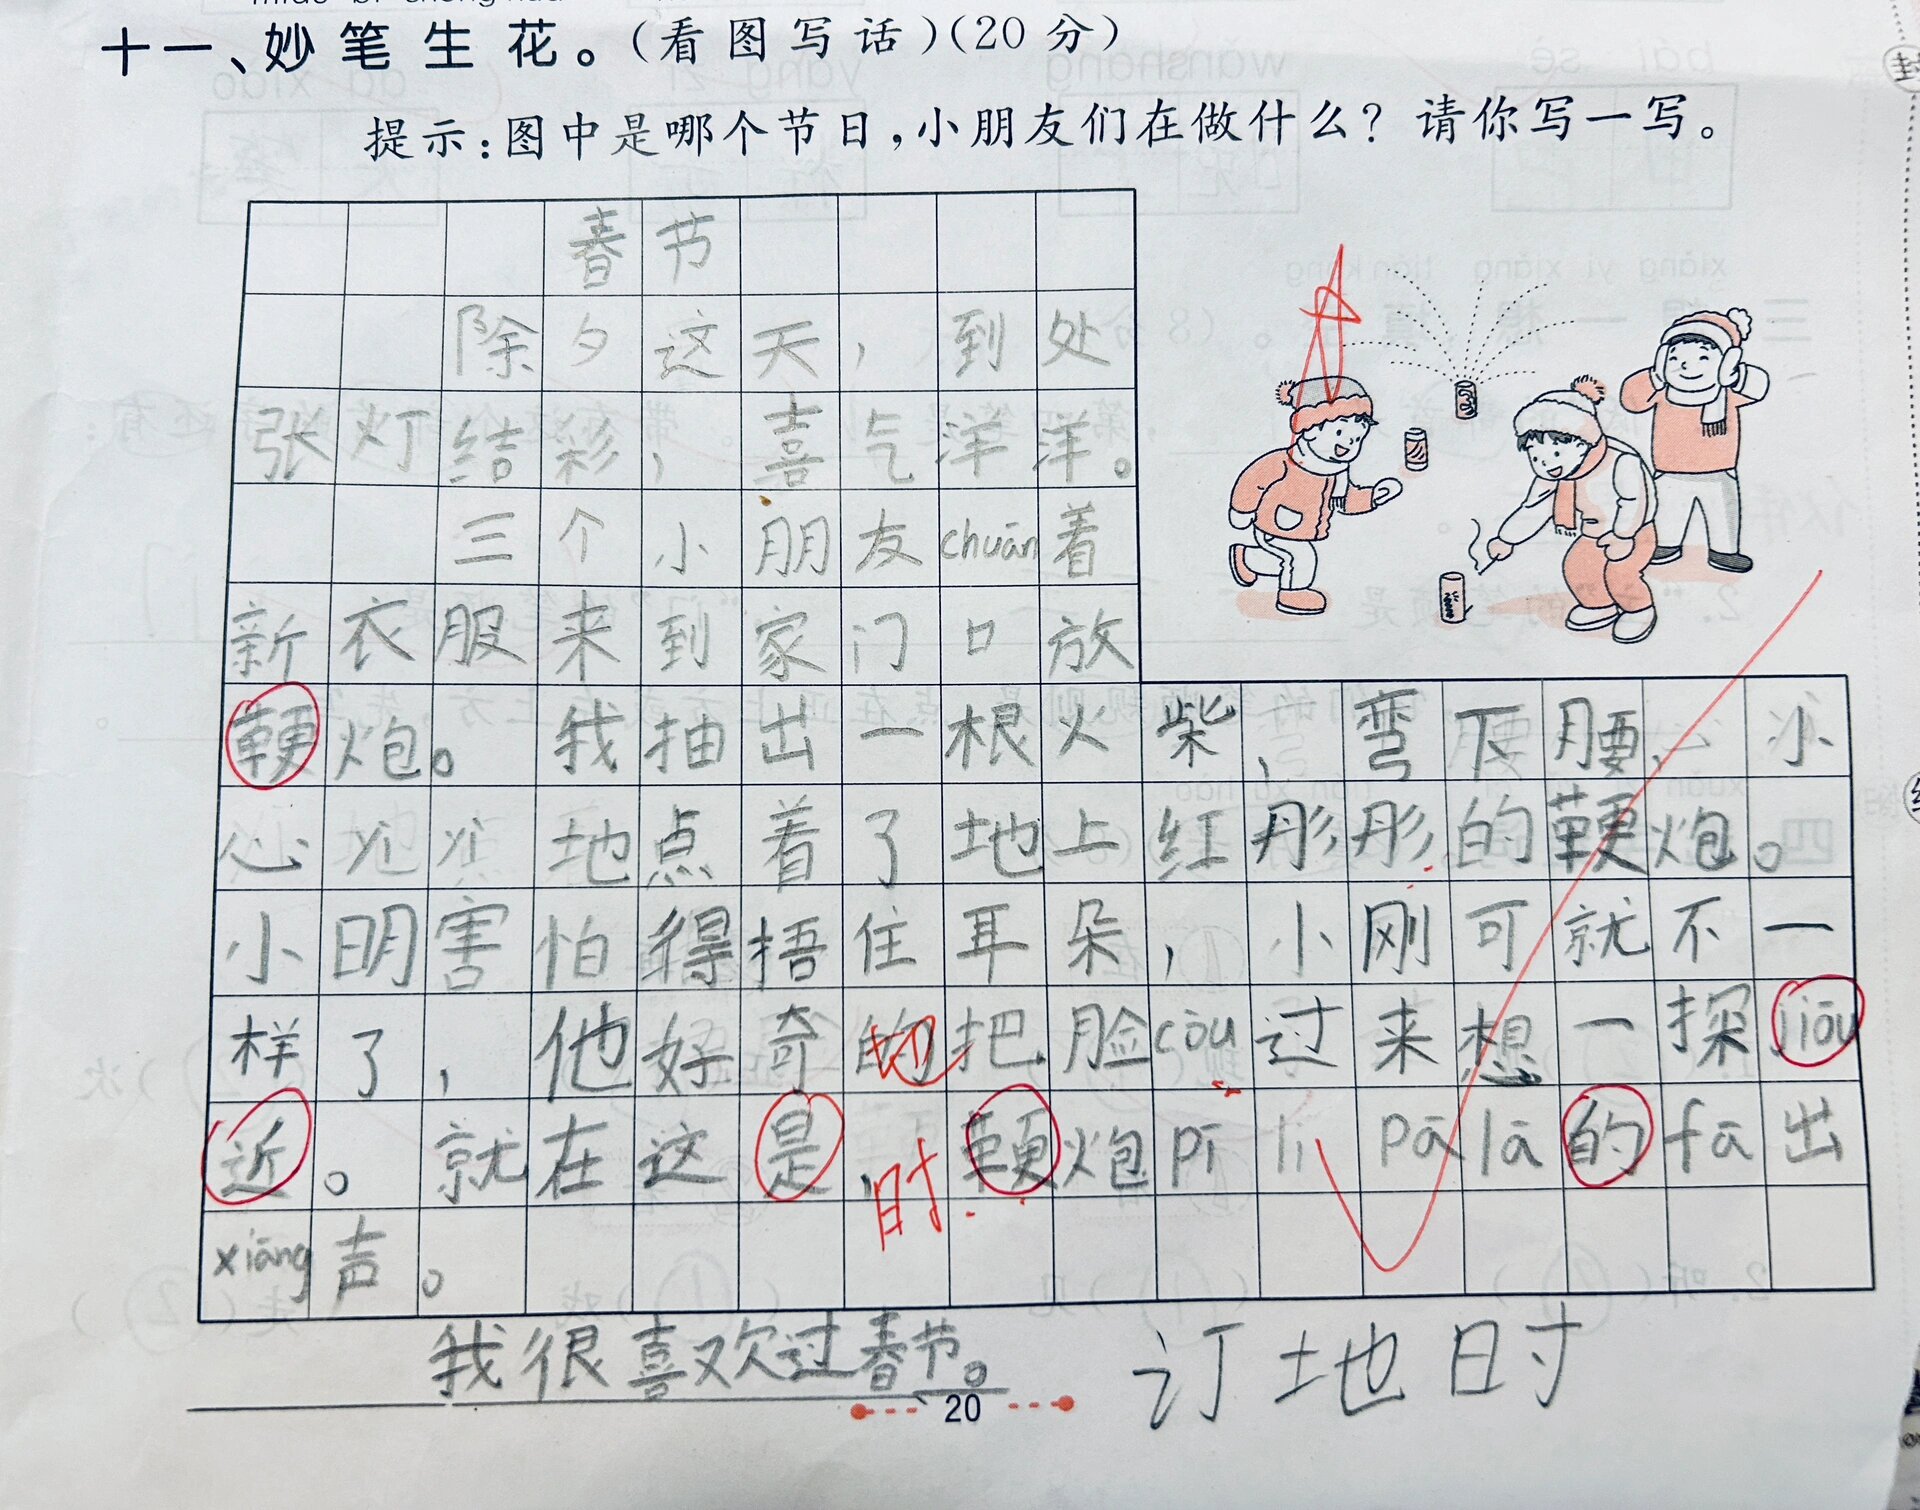 十一、妙笔生花。(看图写话)(20分)
提示:图中是哪个节日,小朋友们在做什么?请你写一写。
春节
除夕这天,到处
张灯结彩,喜气洋洋。
三个小朋友chuān着
新衣服来到家门口放
鞭炮。我抽出一根火柴,弯下腰,小
心火火地点着了地上红彤彤的鞭炮。
小明害怕得捂住耳朵,小刚可就不一
样了,他好奇的把脸còu过来想一探jiōu
近。就在这是,鞭炮pī li pā lā的fā出
时
xiāng声。
我很喜欢过春节。
订 地 时
20